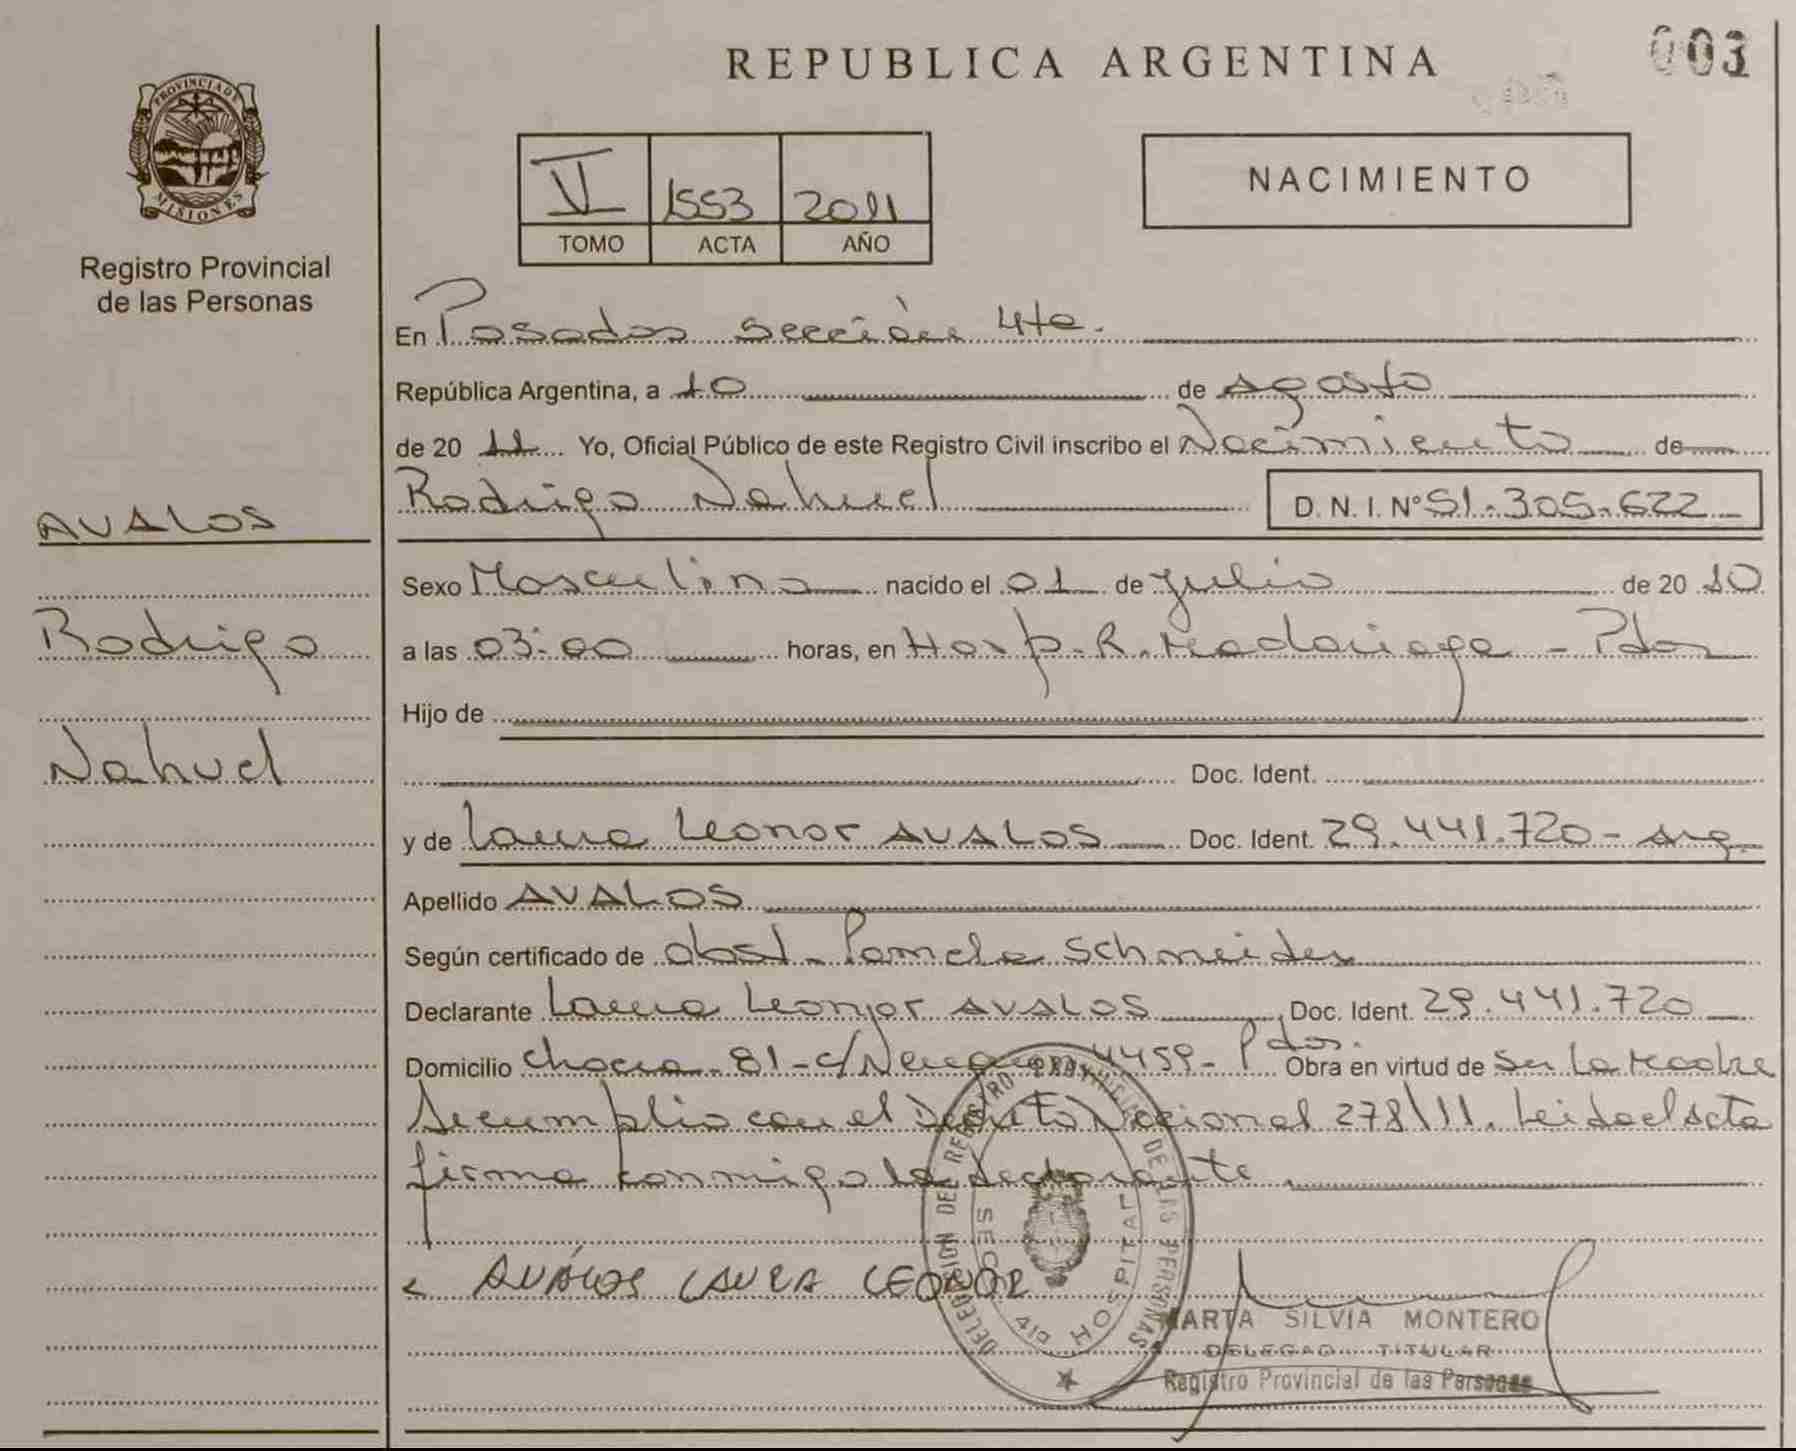 REPUBLICA ARGENTINA
003
PROVINCIA DE
MISIONES
Registro Provincial
de las Personas
V 1553 2011
TOMO ACTA AÑO
NACIMIENTO
En Posadas sección 4ta.
República Argentina, a 10 de Agosto
de 20 11 Yo, Oficial Público de este Registro Civil inscribo el Nacimiento de
Rodrigo Nahuel D.N.I. N° 51.305.622
AVALOS
Rodrigo
Nahuel
Sexo Masculino nacido el 01 de julio de 20 10
a las 03:00 horas, en Hosp. R. Madariaga - Pdas
Hijo de
Doc. Ident.
y de Laura Leonor AVALOS Doc. Ident. 29.441.720 - Arg.
Apellido AVALOS
Según certificado de obst. Pamela Schneider
Declarante Laura Leonor AVALOS Doc. Ident. 29.441.720
Domicilio chacra - 81 - c/ Neuquen 4459 - Pdas. Obra en virtud de Ser La Madre
Se cumplio con el Decreto Nacional 278/11. Leida el Acta
firma conmigo la declarante
AVALOS LAURA LEONOR
DELEGACION DEL REGISTRO PROVINCIAL DE LAS PERSONAS
SECC 4ta HOSPITAL
MARTA SILVIA MONTERO
DELEGAD TITULAR
Registro Provincial de las Personas